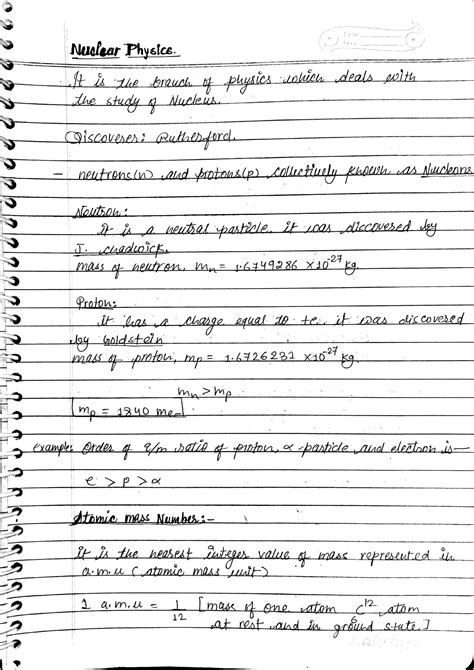 Nuclear Physics.
It is the branch of physics which deals with
the study of Nucleus.
Discoverer: Rutherford.
- neutrons(n) and protons(p) collectively known as Nucleons
Neutron:
it is a neutral particle. it was discovered by
J. chadwick.
mass of neutron, mn = 1.6749286 ×10⁻²⁷ kg.
Proton:
it has a charge equal to +e. it was discovered
by Goldstein
mass of proton, mp = 1.6726231 ×10⁻²⁷ kg.
mn > mp
[mp = 1840 me]
example: Order of q/m ratio of proton, α-particle and electron is—
e > p > α
Atomic mass Number:-
it is the nearest integer value of mass represented in
a.m.u (atomic mass unit)
1 a.m.u = 1/12 [mass of one atom C¹² atom
at rest and in ground state.]